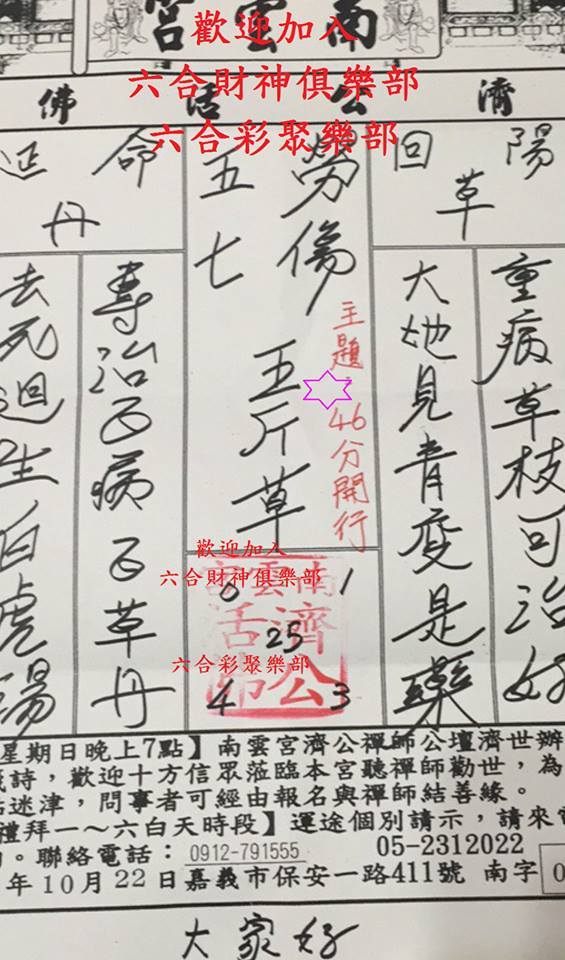 南雲宮
歡迎加入
六合財神俱樂部
六合彩聚樂部
濟公活佛
陽回
草
重病草枝可治好
大地見青变是藥
勞傷
五七
五斤草
主題:46分開行
命延
丹
專治百病百草丹
去死迴生白虎湯
歡迎加入
六合財神俱樂部
六合彩聚樂部
南雲宮
濟公活佛
0 1
25
4 3
星期日晚上7點】南雲宮濟公禪師公壇濟世辦
詩，歡迎十方信眾蒞臨本宮聽禪師勸世，為
點迷津，問事者可經由報名與禪師結善緣。
禮拜一～六白天時段】運途個別請示，請來電
。聯絡電話：0912-791555 05-2312022
年10月22日嘉義市保安一路411號 南字 0
大家好